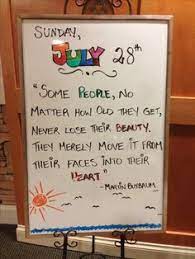 SUNDAY,
JULY 28th
"SOME PEOPLE, NO
MATTER HOW OLD THEY GET,
NEVER LOSE THEIR BEAUTY.
THEY MERELY MOVE IT FROM
THEIR FACES INTO THEIR
HEART"
- MARTIN BUXBAUM